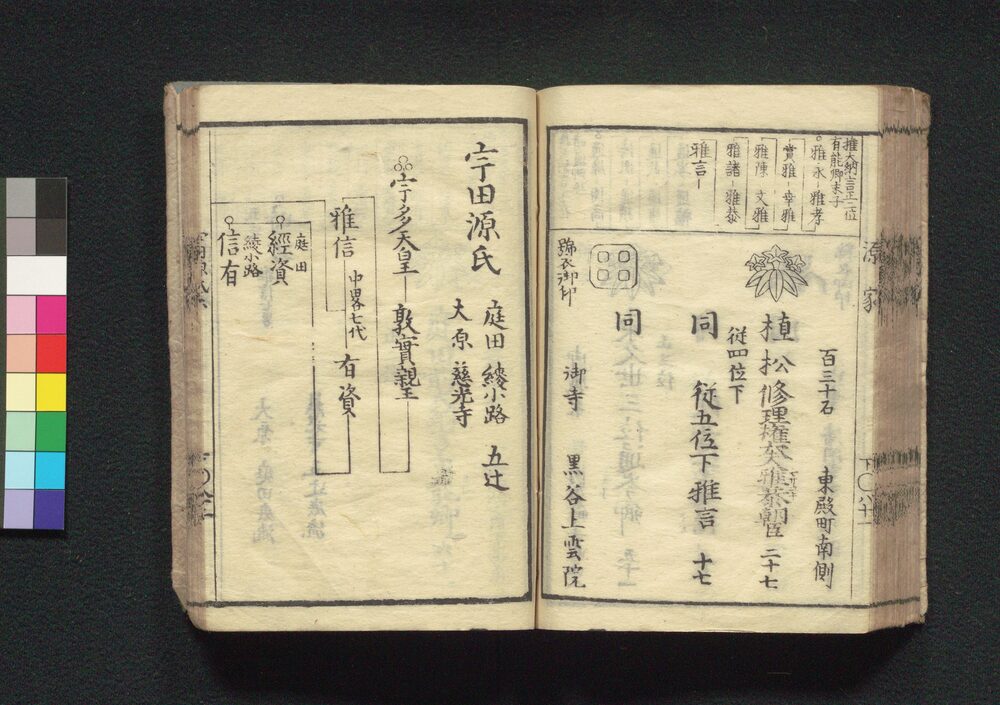 推大納言正二位
有能卿末子
雅永 雅孝
賞雅 幸雅
雅陳 文雅
雅諸 雅恭
雅言
源家
百三十石 東殿町南側
植松修理権大夫雅恭朝臣 二十七
従四位下
同 従五位下 雅言 十七
同
御寺 黒谷上雲院
宇田源氏
庭田 綾小路 五辻
大原 慈光寺
宇多天皇 敦實親王
雅信 中畧七代 有資
庭田
經資
綾小路
信有